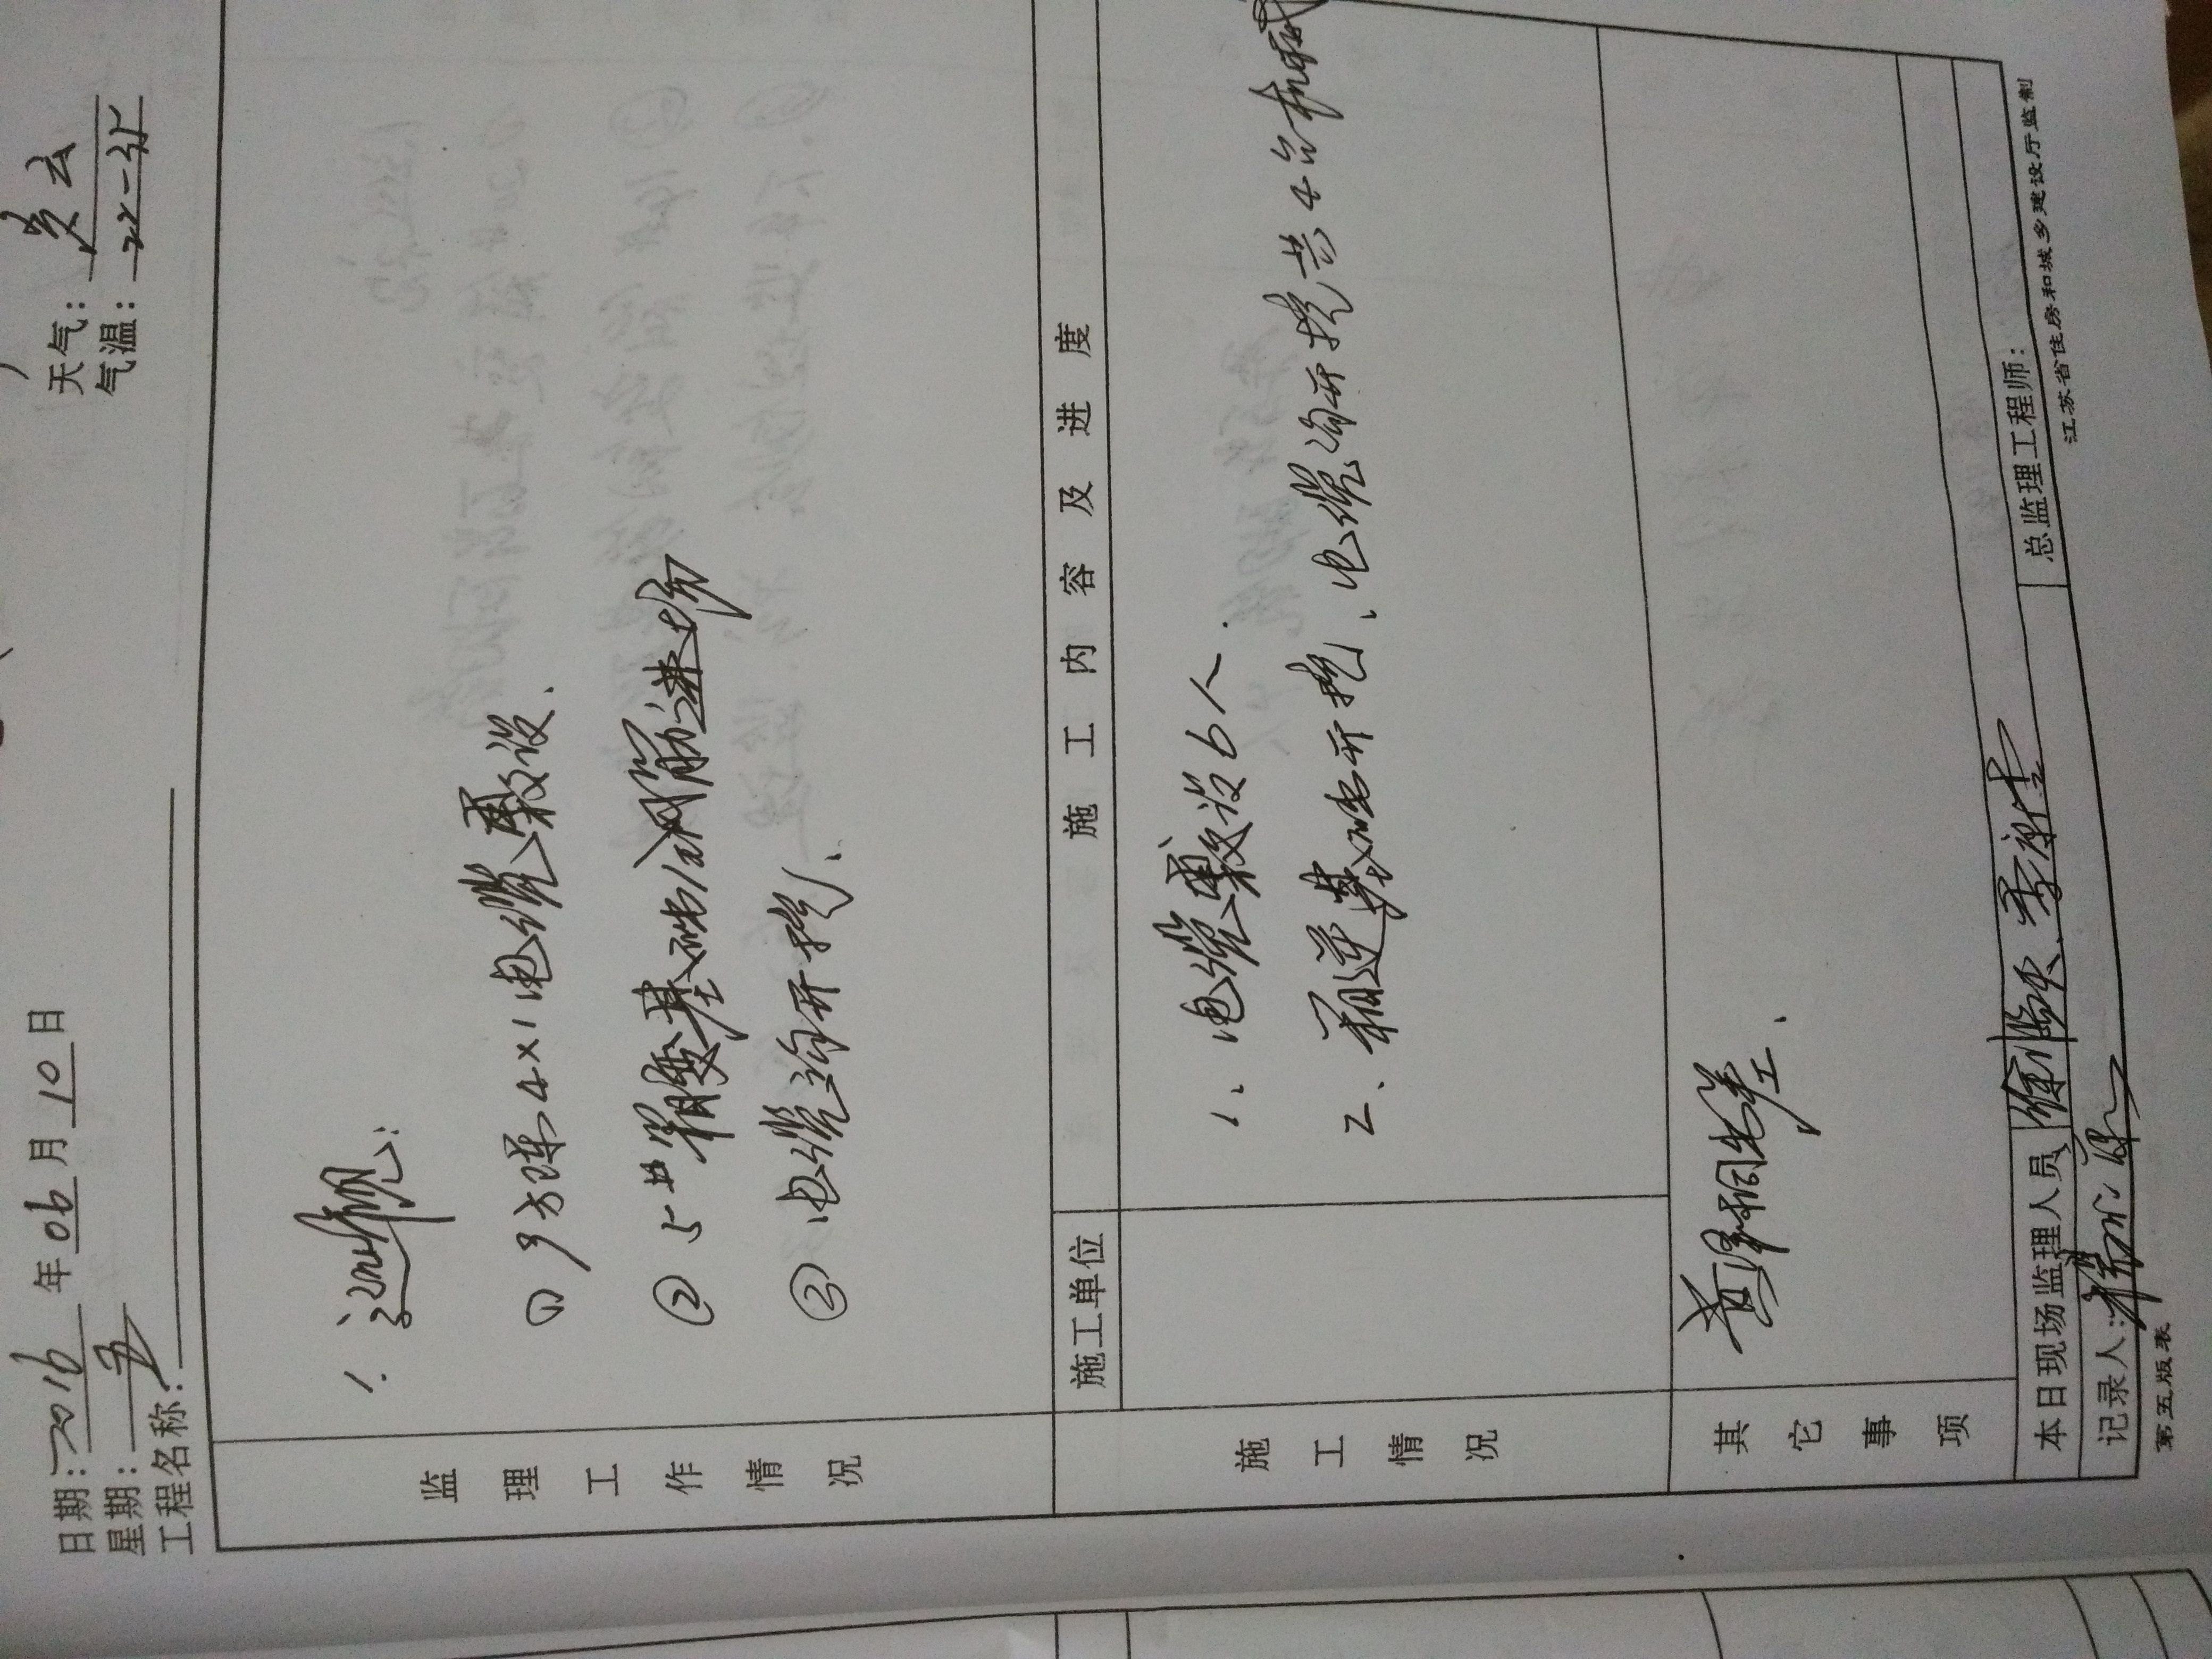 日期:2016年06月10日 天气:多云
星期:五 气温:22-35
工程名称:
监理工作情况
1. 巡视:
① 9方阵4×1电缆敷设、
② 5#箱变基础钢筋进场
③ 电缆沟开挖、
施工单位 施工内容及进度
施工情况
1、电缆敷设6人.
2、箱逆基础开挖、电缆沟开挖共4台机械
其它事项
本日现场监理人员
总监理工程师:
记录人:
第五版表 江苏省住房和城乡建设厅监制